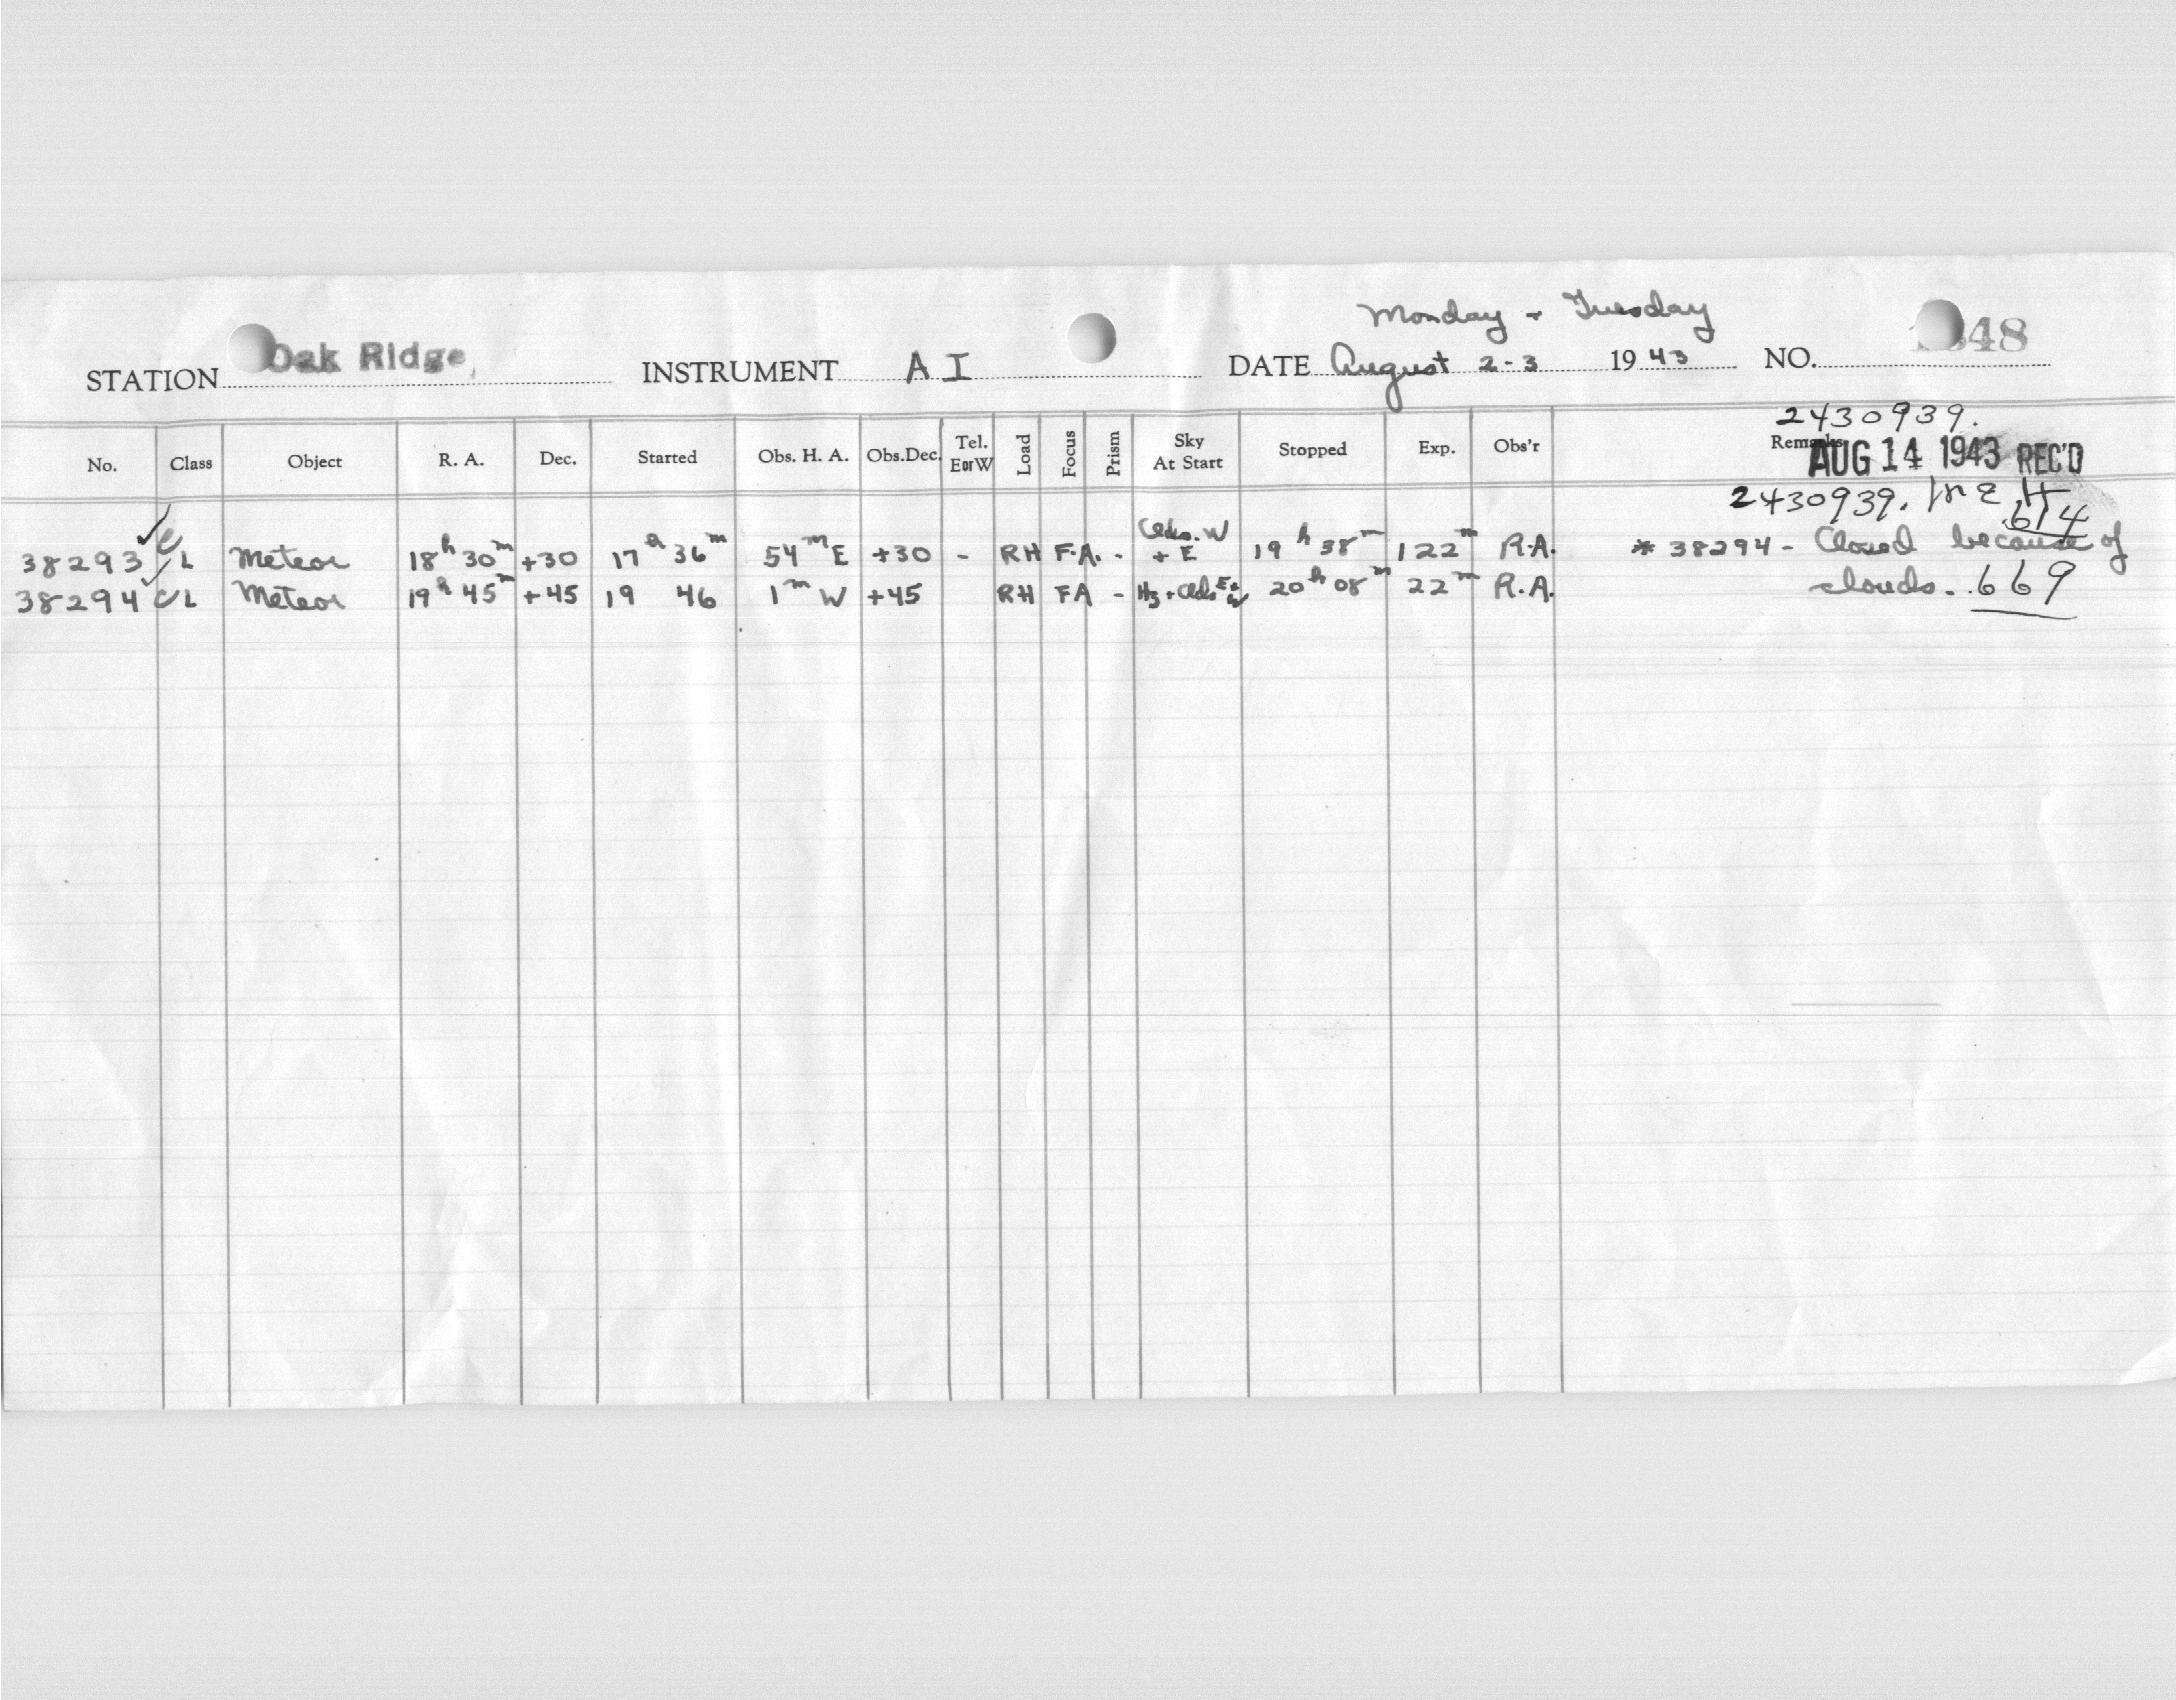 Monday + Tuesday
STATION Oak Ridge, INSTRUMENT A I DATE August 2-3 1943 NO. 48
2430939.
No. Class Object R. A. Dec. Started Obs. H. A. Obs.Dec. Tel. E or W Load Focus Prism Sky At Start Stopped Exp. Obs'r Remarks
AUG 14 1943 REC'D
2430939.
.614
38293 C L Meteor 18h 30m +30 17h 36m 54m E +30 - RH F.A. - Clds. W + E 19h 38m 122m R.A. * 38294 - Closed because of
38294 C L Meteor 19h 45m +45 19 46 1m W +45 RH FA - Hz + Clds E + W 20h 08m 22m R.A. clouds. .669